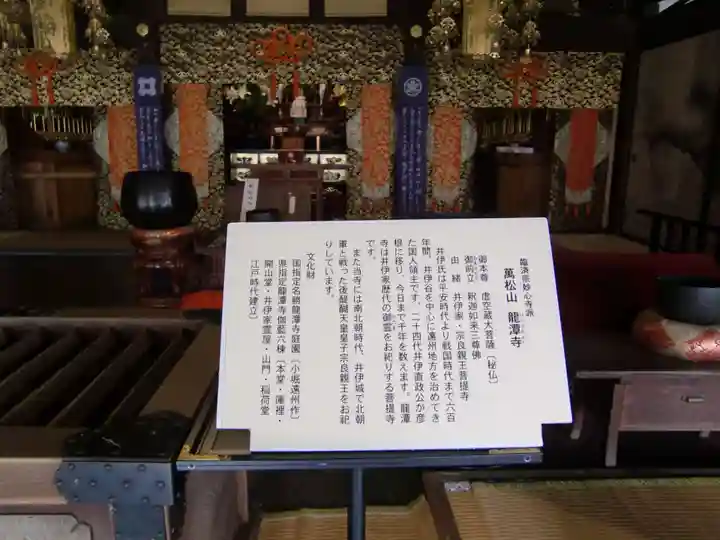 臨済宗妙心寺派
萬松山 龍潭寺
御本尊 虚空蔵大菩薩〔秘仏〕
御前立 釈迦如来三尊佛
由緒 井伊家・宗良親王菩提寺
井伊氏は平安時代より戦国時代まで六百
年間、井伊谷を中心に遠州地方を治めてき
た国人領主です。二十四代井伊直政公が彦
根に移り、今日まで千年を数えます。龍潭
寺は井伊家歴代の御霊をお祀りする菩提寺
です。
また当寺には南北朝時代、井伊城で北朝
軍と戦った後醍醐天皇皇子宗良親王をお祀
りしています。
文化財
国指定名勝龍潭寺庭園〔小堀遠州作〕
県指定龍潭寺伽藍六棟〔本堂・庫裡・
開山堂・井伊家霊屋・山門・稲荷堂
江戸時代建立〕